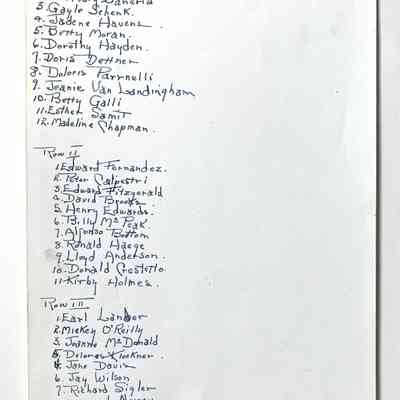 3. Gayle Schenk.
4. Jadene Havens.
5. Betty Moran.
6. Dorothy Hayden.
7. Doris Dettner
8. Doloris Parrnelli
9. Jeanie Van Landringham
10. Betty Galli
11. Esther Samit
12. Madeline Chapman.
Row II
1. Edward Fernandez.
2. Peter Calpestri
3. Edward Fitzgerald
4. David Brooks.
5. Henry Edwards.
6. Billy McPeak.
7. Alfonso Bottom
8. Ronald Haege
9. Lloyd Anderson.
10. Donald
11. Kirby Holmes.
Row III
1. Earl Lander
2. Mickey O'Reilly
3. Joanne McDonald
5. Delores Klockner.
4. Jane Davis
6. Jay Wilson
7. Richard Sigler